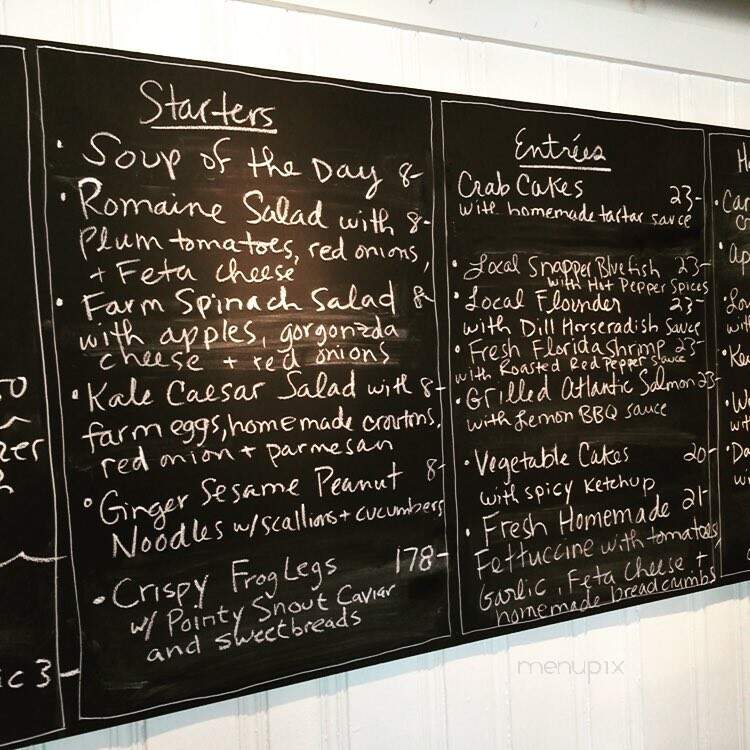 Starters
• Soup of the Day 8-
• Romaine Salad with 8-
Plum tomatoes, red onions,
+ Feta cheese
• Farm Spinach Salad 8-
with apples, gorgonzda
cheese + red onions
• Kale Caesar Salad with 8-
farm eggs, homemade croutons,
red onion + parmesan
• Ginger Sesame Peanut 8-
Noodles w/scallions + cucumbers
• Crispy Frog Legs 178-
w/ Pointy Snout Caviar
and sweetbreads
Entrées
Crab Cakes 23-
with homemade tartar sauce
• Local Snapper Bluefish 23-
with Hot Pepper Spices
• Local Flounder 23-
with Dill Horseradish Sauce
• Fresh Florida Shrimp 23-
with Roasted Red Pepper Sauce
• Grilled Atlantic Salmon 23-
with Lemon BBQ sauce
• Vegetable Cakes 20-
with spicy ketchup
• Fresh Homemade 21-
Fettuccine with tomatoes
Garlic, Feta Cheese +
homemade breadcumbs
ic 3-
menupix